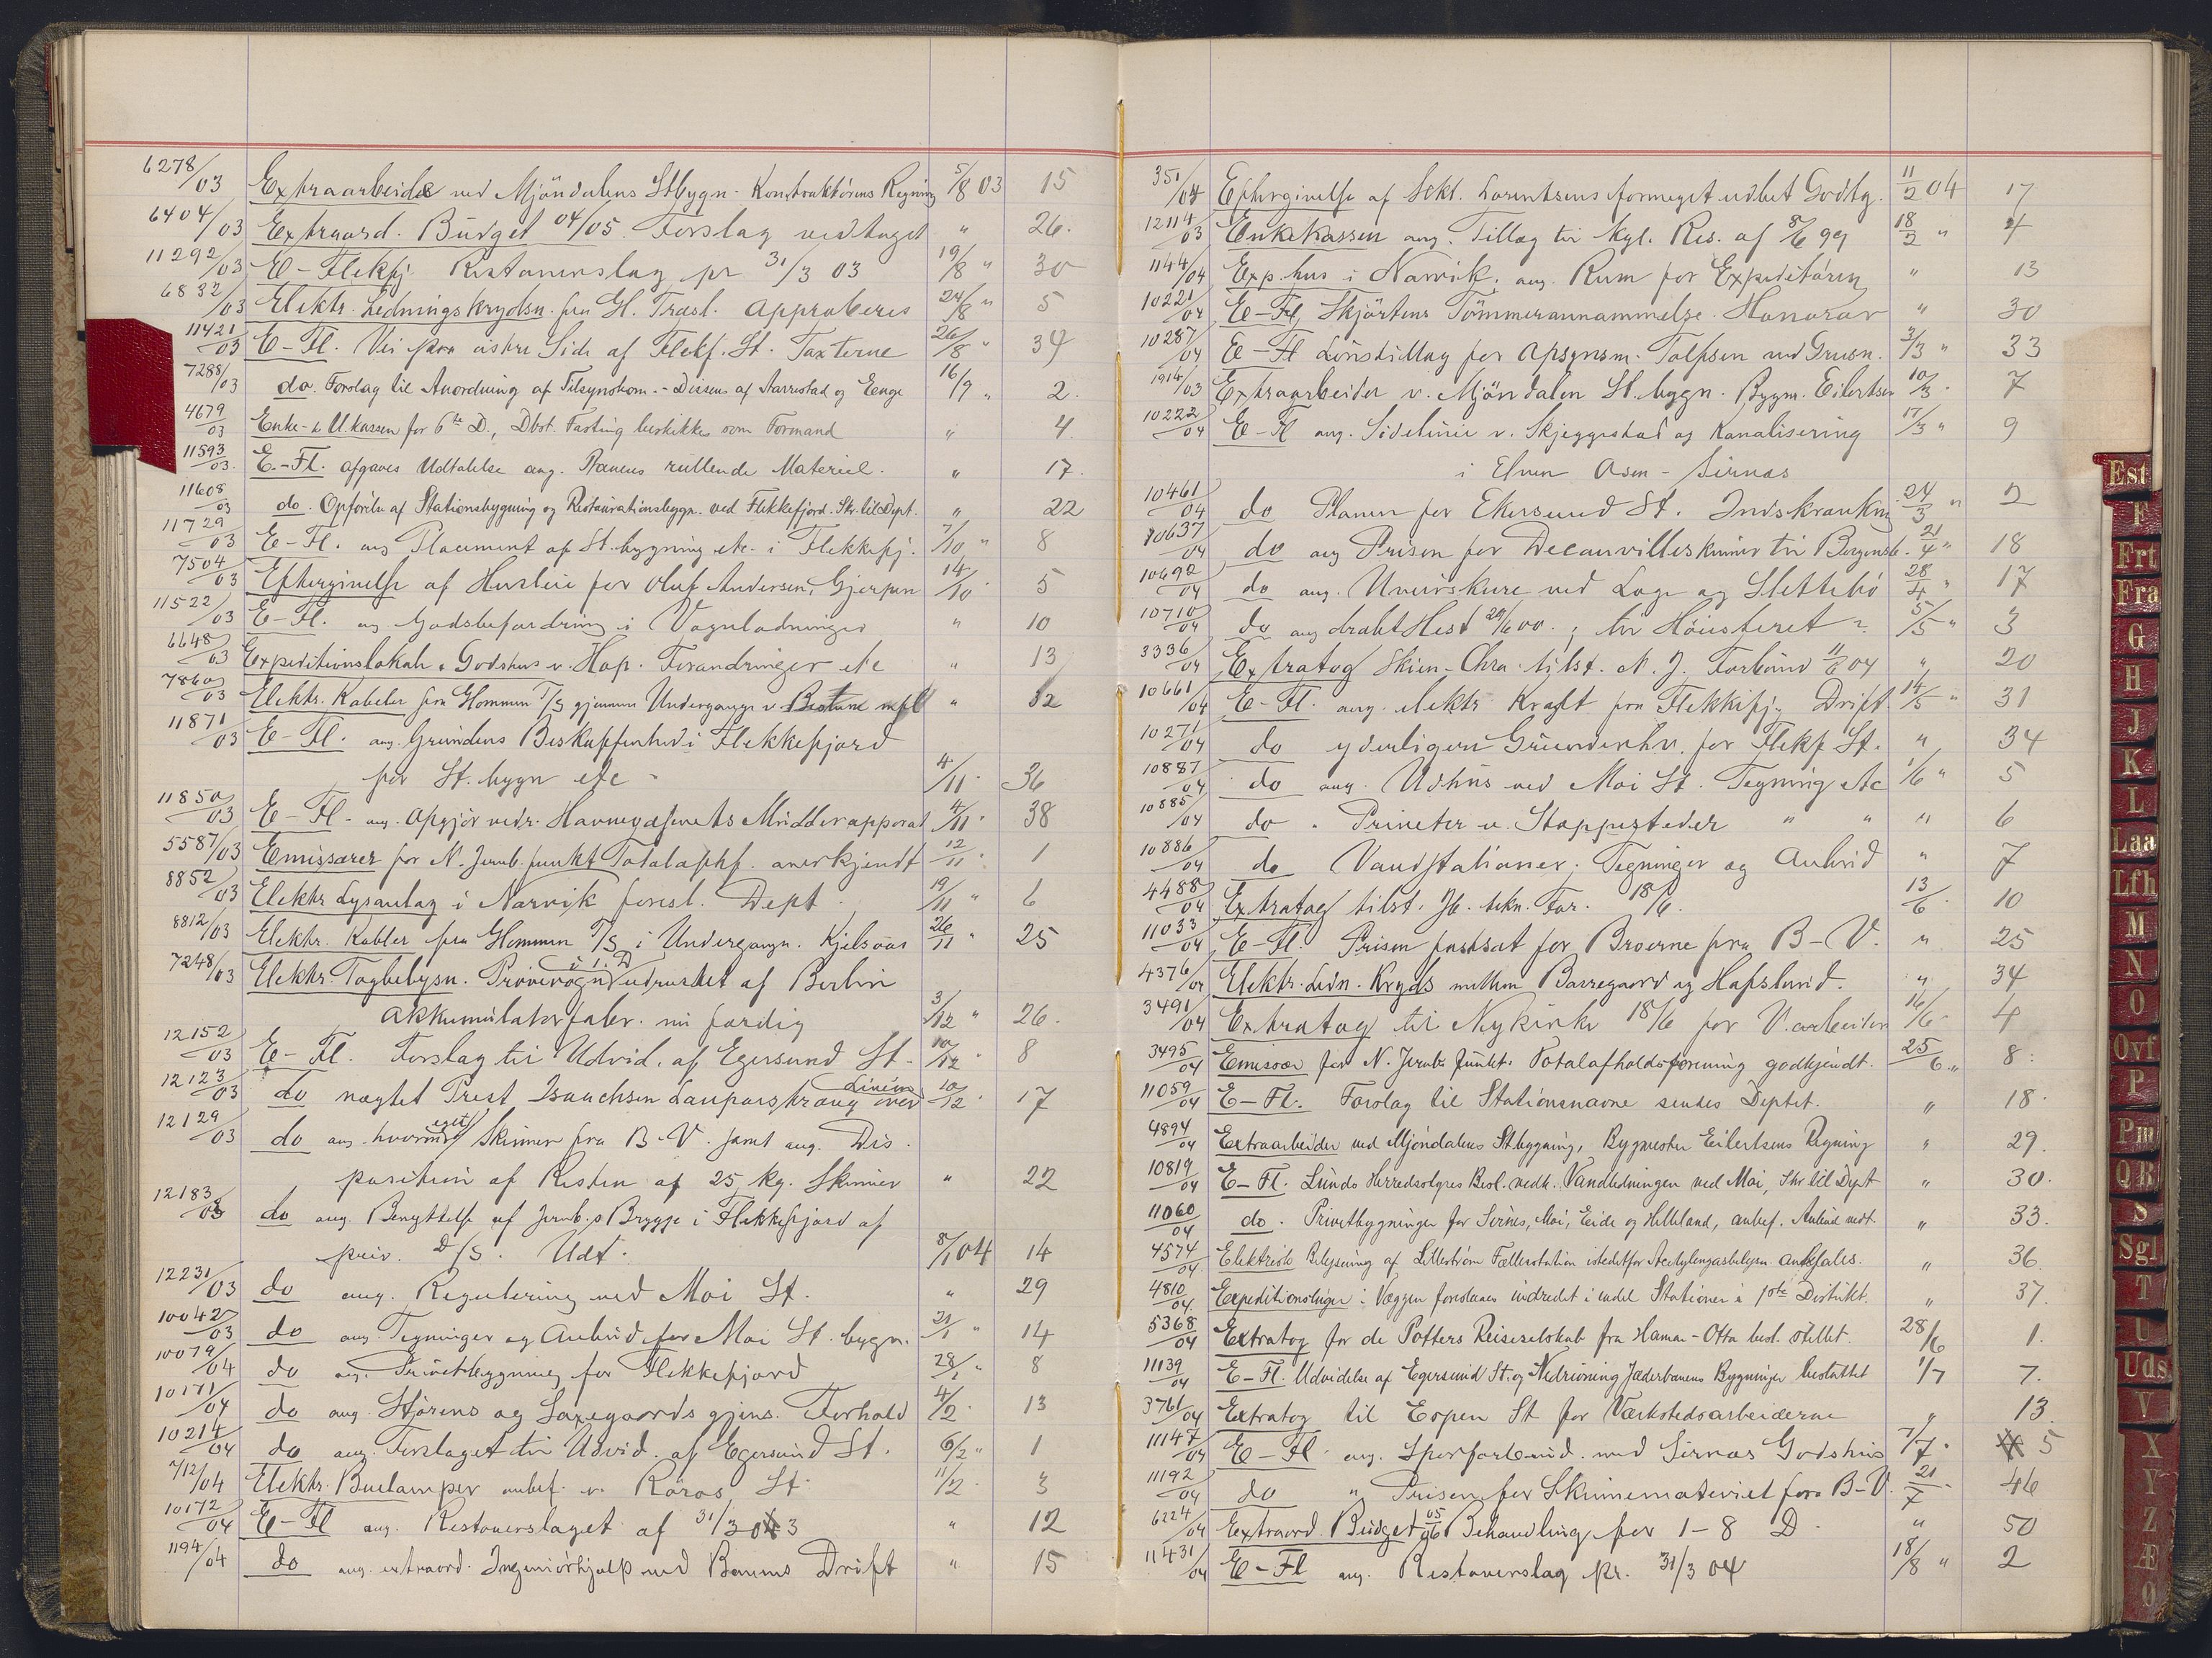 6278/03 Extraarbeide ved Mjöndalens Stbygn - Konstraktörens Regning 5/8 03 15
6404/03 Extraord. Budget 04/05 Forslag vedtaget " 26.
11292/03 E-Flekfj. Restoverslag pr 31/3 03 19/8 " 30
6832/03 Elektr. Ledningskrydsn. fra Gl. Træsl. Approberes 24/8 " 5
11421/03 E-Fl. Vei paa østre Side af Flekf. St. Taxterne 26/8 " 34
7288/03 do. Forslag til Anordning af Tilsynskom. - Dissens af Aarrestad og Eenge 16/9 " 2.
4679/03 Enke- & U.kassen for 6te D., Dbst. Fasting beskikkes som Formand " 4
11593/03. E.-Fl. afgaves Udtalelse ang. Banens rullende Materiel. " 17.
11608/03 do. Opförelse af Stationsbygning og Restaurationsbygn. ved Flekkefjord. Skr. til Dept. " 22
11729/03 E-Fl. ang Placement af St.bygning etc. i Flekkefj. 7/10 " 8
7504/03 Eftergivelse af Husleie for Oluf Andersen, Gjerpen 14/10 5
11522/03 E-Fl. ang Godsbefordring i Vognladninger " 10
6648/03 Expeditionslokale & Godshus v. Hop. Forandringer etc " 13
7860/03 Elektr. Kabeler fra Glommen T/S gjennem Undergange v. Bestum " 32
11871/03 E-Fl. ang. Grundens Beskaffenhed i Flekkefjord
for St. bygn etc 4/11 36
11850/03 E-Fl. ang. Opgjör vedr. Havnevæsenets Mudderapparat 4/11 " 38
5587/03 Emissærer for N. Jernb.funkt Totalafhf. anerkjendt 12/11 1
8852/03 Elektr Lysanlæg i Narvik foresl. Dept. 19/11 " 6
8812/03 Elektr. Kabler fra Glommen T/S i Undergangn. Kjelsaas 26/11 " 25
i 1. D
7248/03 Elektr. Togbelysn. Prøvevogn udrustet af Berlin
Akkumulatorfabr. nu færdig 3/12 " 26.
12152/03 E-Fl. Forslag til Udvid. af Egersund St. 10/12 8
Linien
12123/03 do nægtet Prest Isaachsen Lauparstrang over 10/12 17
eget
12129/03 do ang. Skinner fra B.V. samt ang. Dis
position af Resten af 25 kg. Skinner " 22
12183/03 do ang. Benyttelse af Jernb.s Brygge i Flekkefjord af
priv. D/S. Udt. 8/1 04 14
12231/03 do ang. Regulering ved Moi St. " 29
10042/03 do ang. Tegninger og Anbud for Moi St. bygn. 21/1 " 14
10079/04 do ang. Privetbygning for Flekkefjord 28/1 " 8
10171/04 do ang. Störens og Saxegaards gjens. Forhold 4/2 13
10214/04 do ang. Forslaget til Udvid. af Egersund St. 6/2 " 1
712/04 Elektr. Buelamper anbef. v. Röros St. 11/2 3
10172/04 E-Fl ang. Restoverslaget af 31/3 03 " 12
1194/04 do ang. extraord. Ingeniörhjælp ved Banens Drift " 15
351/04 Eftergivelse af Sekt. Lorentsens formeget udbet Godtg. 11/2 04 17
12114/03 Enkekassen ang. Tillæg til Kgl. Res. af 8/6 99 18/2 " 4
1144/04 Exp.hus i Narvik, ang. Rum for Expeditören " 13
10221/04 E-Fl, Skjörtens Tömmerannammelse. Honorar " 30
10287/04 E-Fl Lönstillæg for Opsynsm. Tolfsen ved Grusn. 3/3 " 33
1914/03 Extraarbeider v. Mjöndalen St. bygn. Bygm. Eilertsen 10/3 7
10222/04 E-Fl ang. Sidelinie v. Skjeggestad og Kanalisering 17/3 " 9
i Elven Osen - Sirnæs
10461/04 do Planen for Ekersund St. Indskrænkn 24/3 " 2
10637/04 do ang Prisen for Decauvilleskinner til Bergensb. 21/4 " 18
10692/04 do ang. Uveirskure ved Lage og Slettebö 28/4 " 17
10710/04 do ang dræbt Hest 20/6 00. 5/5 " 3
3336/04 Extratog Skien-Chra tilst. N. J. Forbund 11/6 04 " 20
10661/04 E-Fl. ang. elektr Kraft fra Flekkefj. Drift 14/5 " 31
10271/04 do yderligere Grunderhv. for Flekf St. " 34
10887/04 do ang. Udhus ved Moi St. Tegning etc 1/6 " 5
10885/04 do " Priveter v. Stoppesteder " " " 6
10886/04 do Vandstationer, Tegninger og Anbud " 7
4488/04 Extratog tilst. tekn. For. 18/6. 13/6 10
11033/04 E-Fl. Prisen fastsat for Broerne fra B-V. " 25
4376/04 Elektr. Ledn. Kryds mellem Borregaard og Hafslund. " 34
3491/04 Extratog til Nykirke 18/6 for V.arbeidere 16/6 4
3495/04 Emissær for N. Jernb. funkt. Totalafholdsforening godkjendt. 25/6 " 8
11059/04 E-Fl. Forslag til Stationsnavne sendes Deptet. " 18.
4894/04 Extraarbeider ved Mjöndalens Stbygning, Bygmester Eilertsens Regning " 29.
10819/04 E-Fl. Lunds Herredsstyres Besl. vedk. Vandledningen ved Moi, Skr til Dept " 30.
11060/04 do. Privetbygninger for Sirnes, Moi, Eide og Helleland, anbef. Anbud vedt. " 33.
4574/04 Elektrisk Belysning af Lilleström Fællesstation istedetfor Acetylengasbelysn. anbefales. " 36.
4810/04. Expeditionsluger i Væggen foreslaaes indredet i endel Stationer i 1ste Distrikt. " 37.
5368/04 Extratog for de Potters Reiseselskab fra Hamar-Otta besl. stillet. 28/6 1.
11139/04 E-Fl. Udvidelse af Egersund St. og Nedrivning Jæderbanens Bygninger besluttet 1/7 7.
3761/04 Extratog til Eopen St for Værkstedsarbeiderne " 13.
11147/04 E-Fl ang. Sporforbind. ved Sirnæs Godshus 7/7 5
11192/04 do " Prisen for Skinnemateriel fra B-V. 21/7 46
6224/04 Extraord. Budget 05/06 Behandling for 1-8 D " 50
11431/04 E-Fl ang. Restoverslag pr. 31/3 04 18/8 " 2
Est
F
Frt
Fra
G
H
J
K
L
Laa
Lfh
M
N
O
Ovf
P
Pm
QR
S
Sgl
T
U
Uds
V
X
Y
Z
Æ
Ø